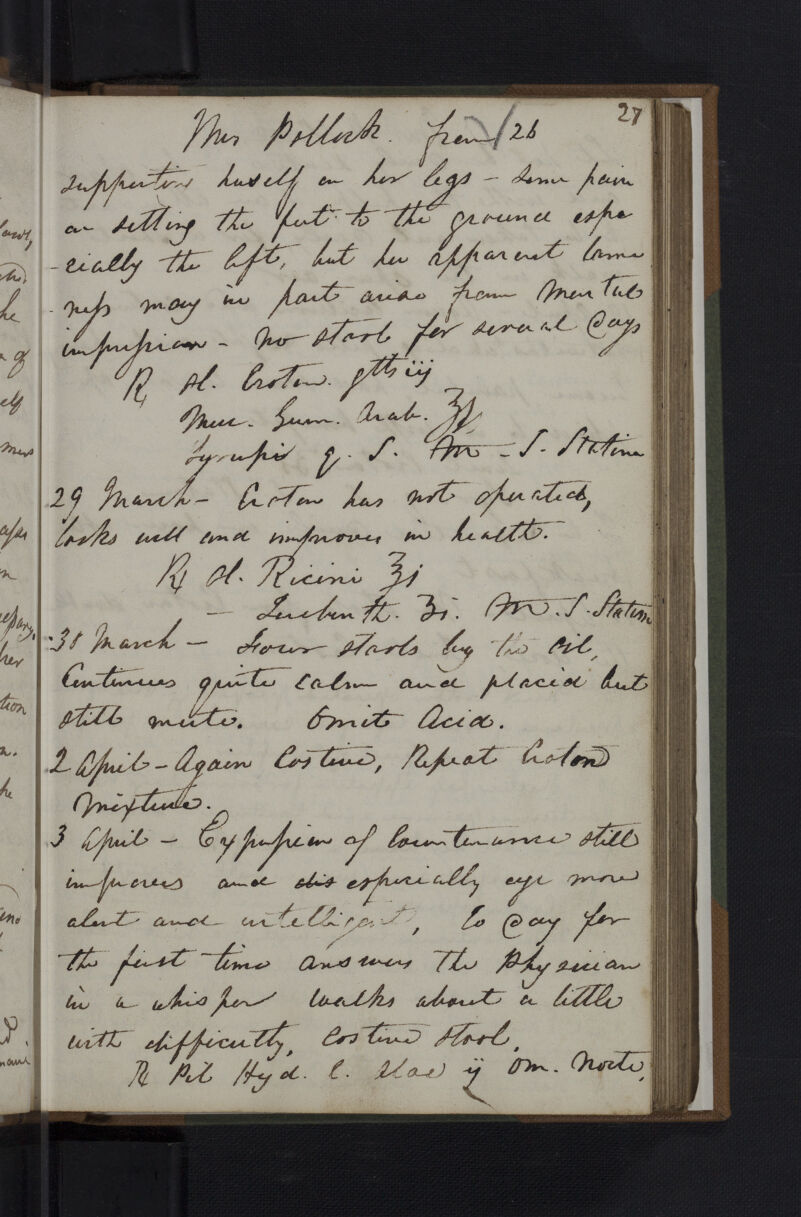 27
Mrs Pollock. from 26
supporting herself on her legs - some pain
on setting the feet to the ground espe
-cially the left, but her apparent lame
-ness may in part arise from Mental
impression - No stool for several days
℞ Ol. Croton. gtts iij
Muc. Gum. Arab. ℥
Syrupi q. S. M - S. Statim
29 March - Croton has not operated,
looks well and improves in health.
℞ Ol. Ricini ℥j
- Terebinth. ʒi. M. S. Statim
30 March - Four stools by the oil,
Continues quite calm and placid but
still mute. Omit Acid.
2 April - Again Costive, Repeat Croton
Mixture.
3 April - Expression of Countenance still
improves and dis especially eye more
alert and intelligent, to day for
the first time answers the Physician
in a whisper walks about a little
with difficulty, costive stool.
℞ Pil Hyd. C. Aloe ij om. Nocte,